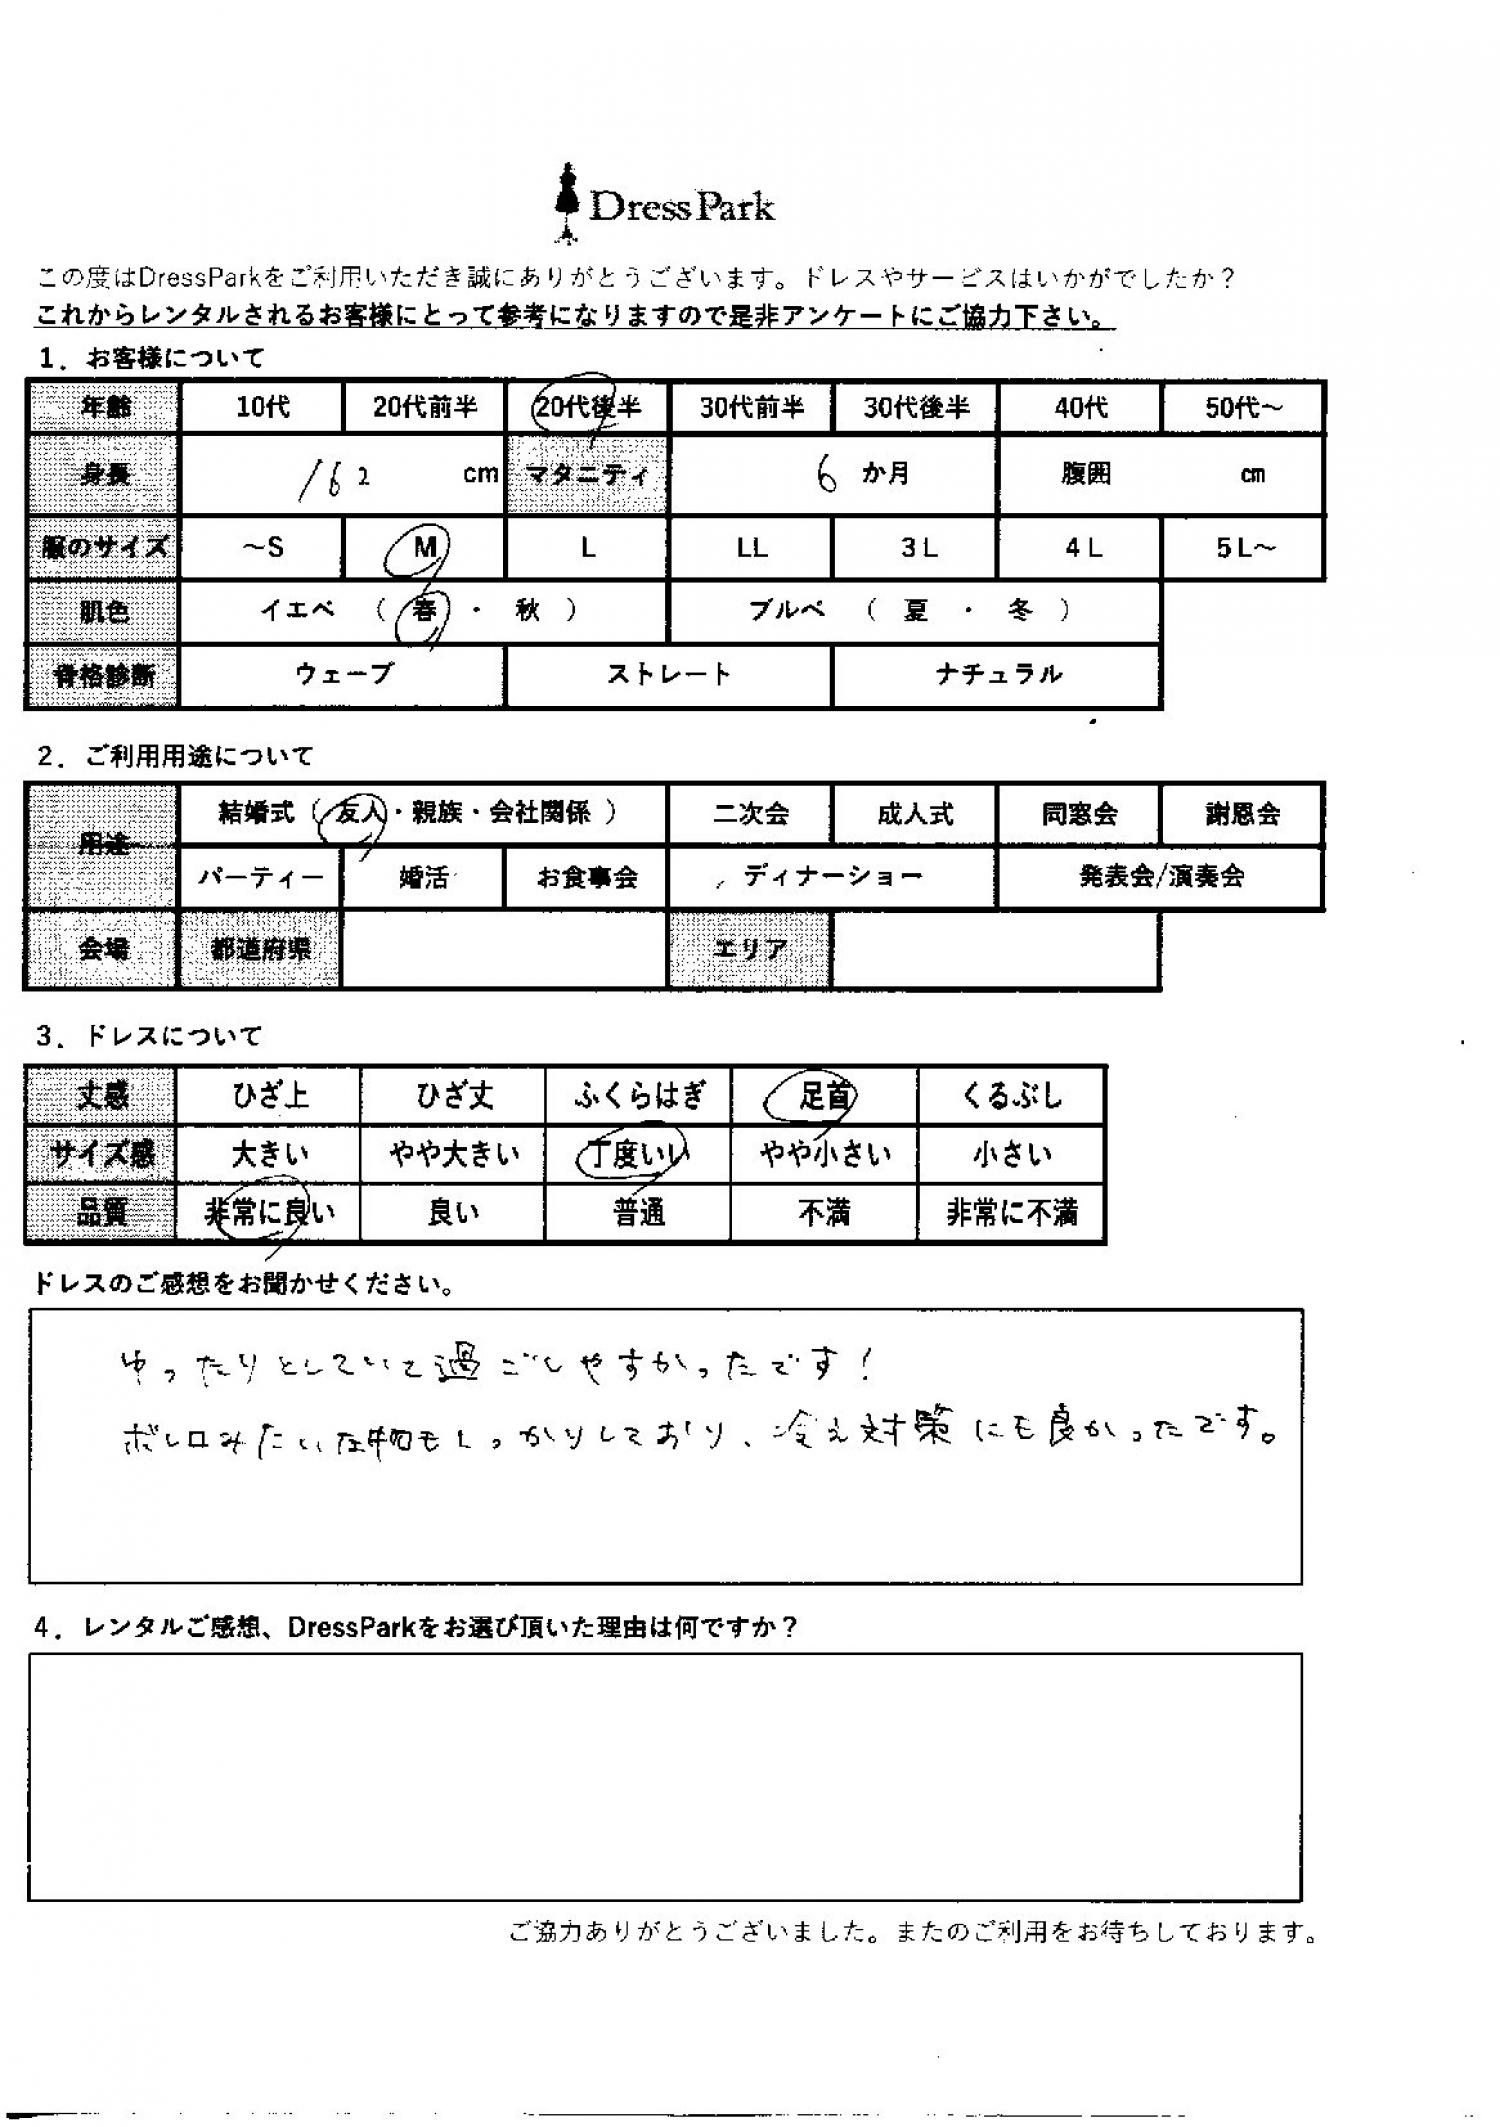 DressPark
この度はDressParkをご利用いただき誠にありがとうございます。ドレスやサービスはいかがでしたか？
これからレンタルされるお客様にとって参考になりますので是非アンケートにご協力下さい。
1．お客様について
年齢 10代 20代前半 20代後半 30代前半 30代後半 40代 50代～
身長 162 cm マタニティ 6 か月 腹囲 cm
服のサイズ ～S M L LL 3L 4L 5L～
肌色 イエベ （ 春 ・ 秋 ） ブルベ （ 夏 ・ 冬 ）
骨格診断 ウェーブ ストレート ナチュラル
2．ご利用用途について
用途 結婚式（ 友人・親族・会社関係 ） 二次会 成人式 同窓会 謝恩会
パーティー 婚活 お食事会 ディナーショー 発表会/演奏会
会場 都道府県 エリア
3．ドレスについて
丈感 ひざ上 ひざ丈 ふくらはぎ 足首 くるぶし
サイズ感 大きい やや大きい 丁度いい やや小さい 小さい
品質 非常に良い 良い 普通 不満 非常に不満
ドレスのご感想をお聞かせください。
ゆったりとしていて過ごしやすかったです！
ボレロみたいな物もしっかりしており、冷え対策にも良かったです。
4．レンタルご感想、DressParkをお選び頂いた理由は何ですか？
ご協力ありがとうございました。またのご利用をお待ちしております。